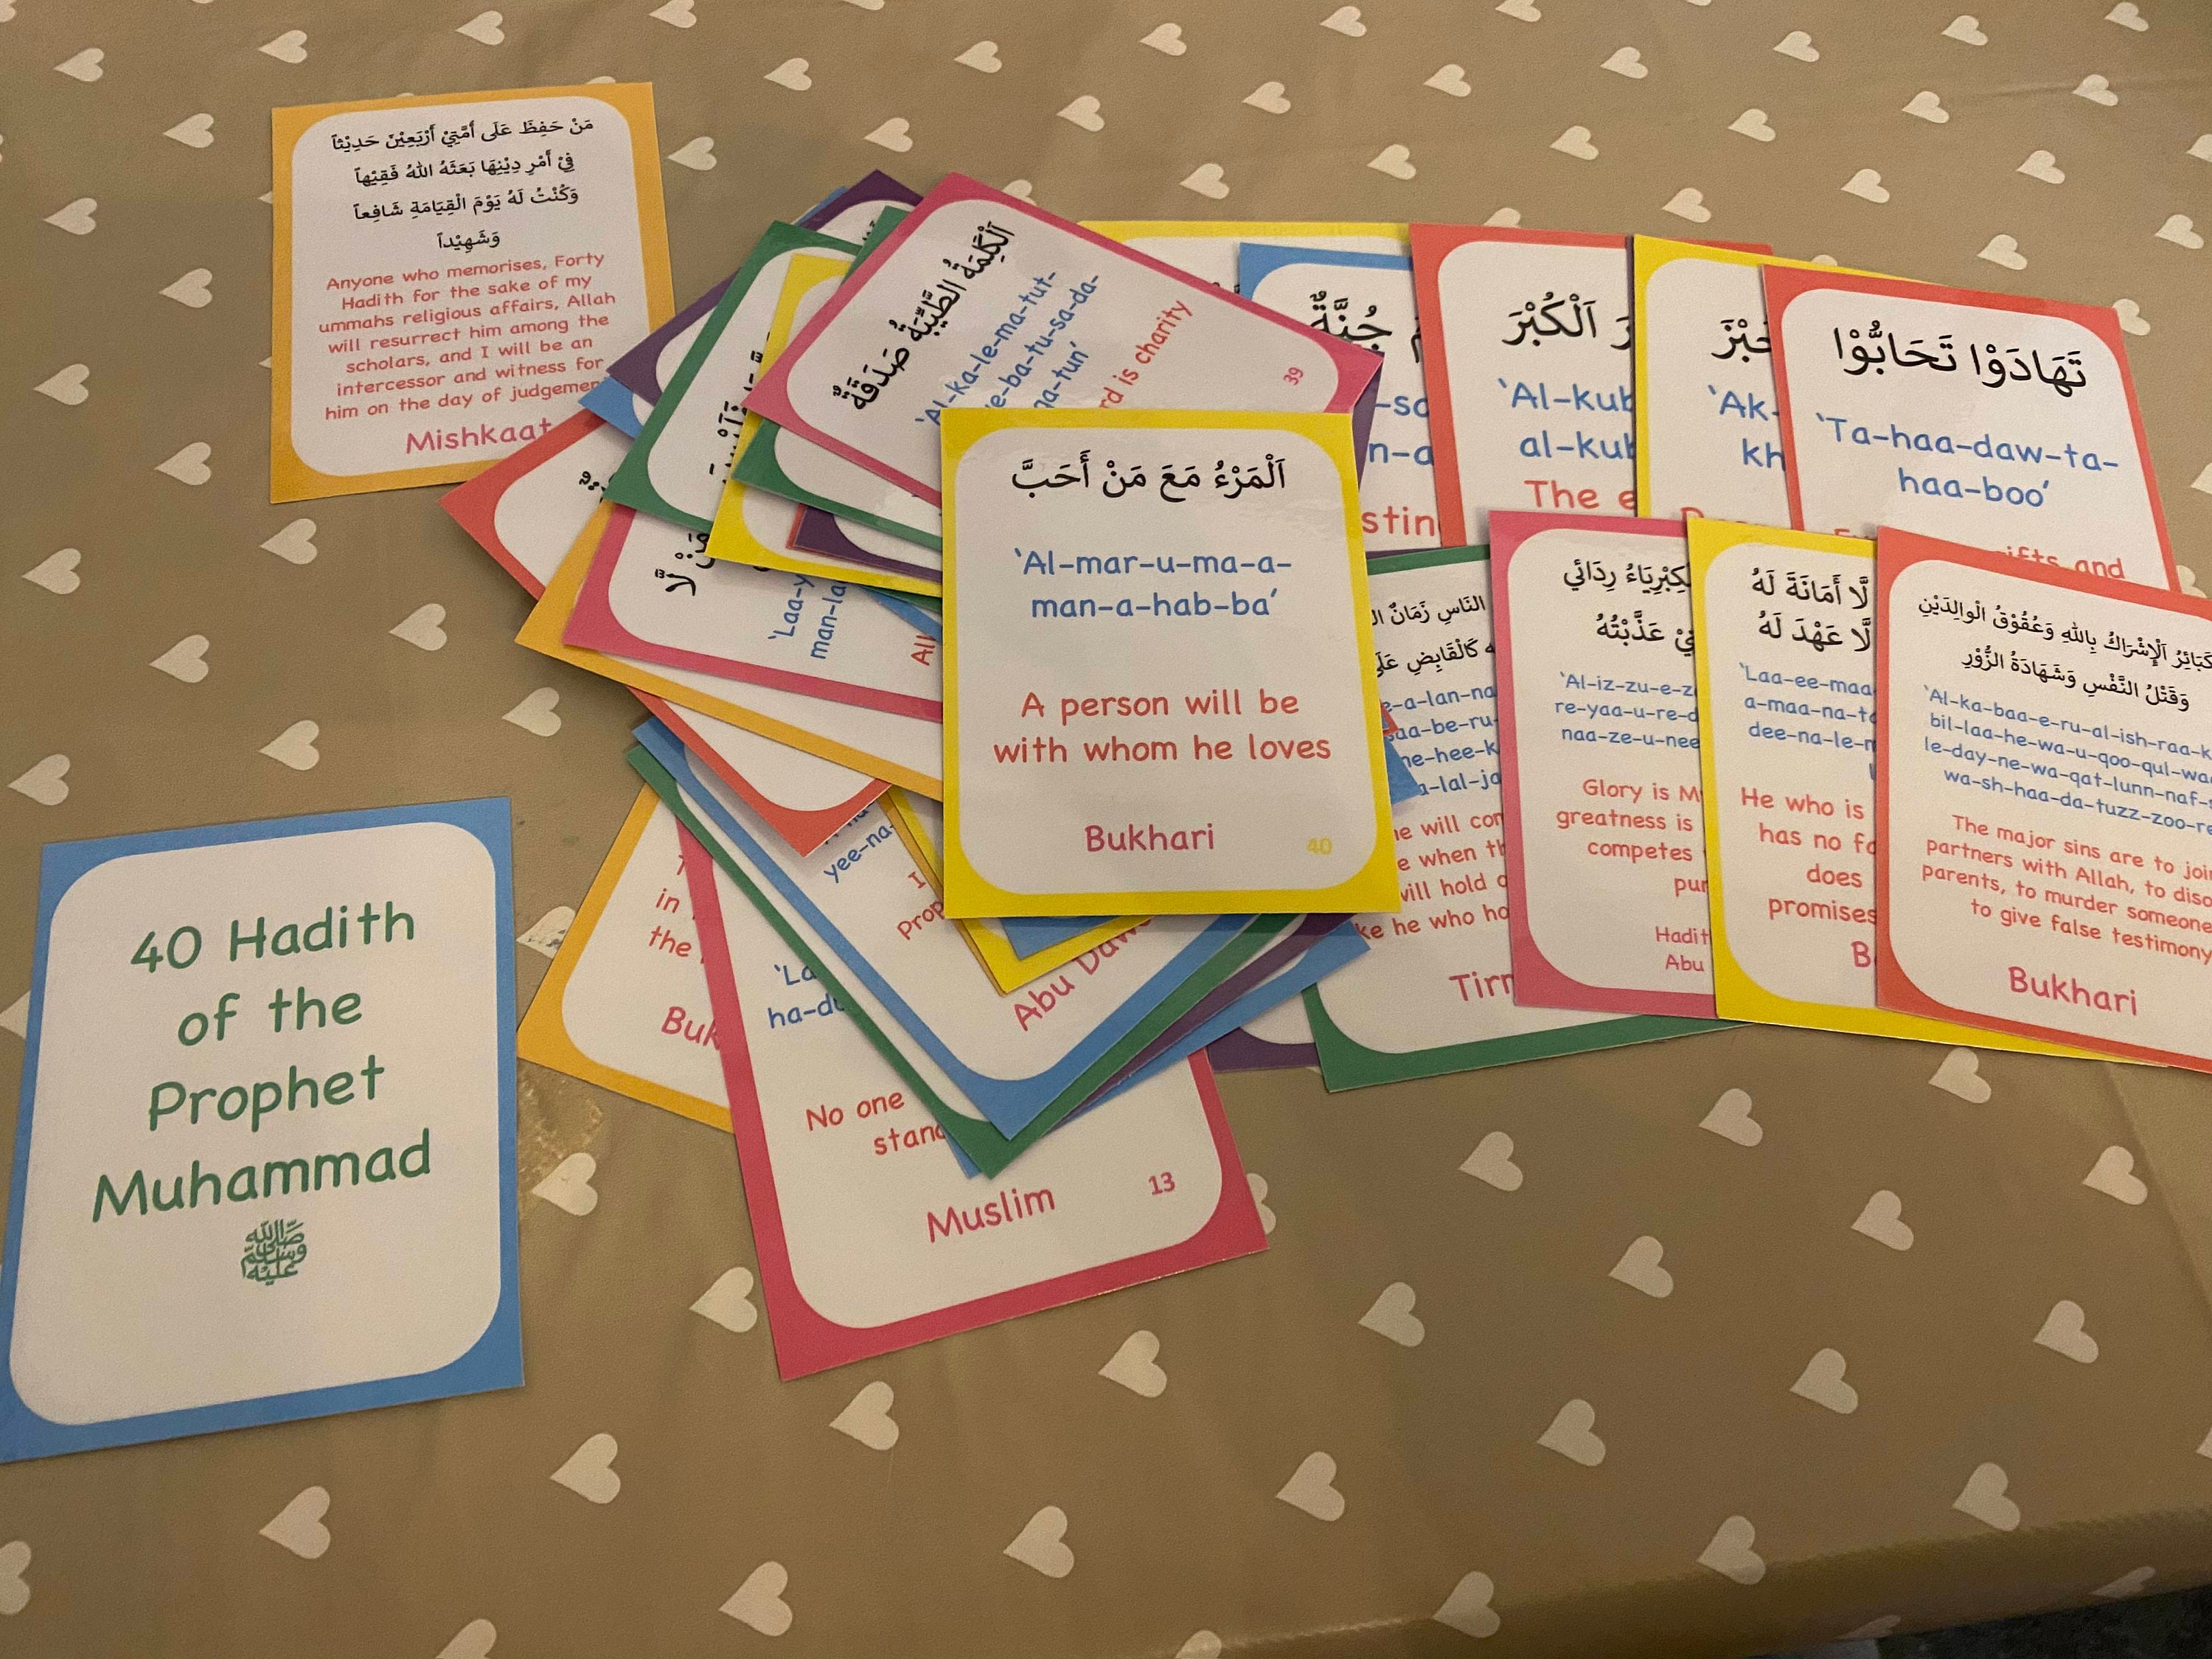 مَنْ حَفِظَ عَلَى أُمَّتِيْ أَرْبَعِيْنَ حَدِيْثاً
فِيْ أَمْرِ دِيْنِهَا بَعَثَهُ اللهُ فَقِيْهاً
وَكُنْتُ لَهُ يَوْمَ الْقِيَامَةِ شَافِعاً
وَشَهِيْداً
Anyone who memorises, Forty
Hadith for the sake of my
ummahs religious affairs, Allah
will resurrect him among the
scholars, and I will be an
intercessor and witness for
him on the day of judgement
Mishkaat
40 Hadith
of the
Prophet
Muhammad
ﷺ
اَلْكَلِمَةُ الطَّيِّبَةُ صَدَقَةٌ
'Al-ka-le-ma-tut-
e-ba-tu-sa-da-
qa-tun'
rd is charity
39
اَلْمَرْءُ مَعَ مَنْ أَحَبَّ
'Al-mar-u-ma-a-
man-a-hab-ba'
A person will be
with whom he loves
Bukhari
40
جُنَّةٌ
n-a
stin
اَلْكُبْرَ
'Al-kub
al-kub
The e
'Ak-
kh
تَهَادَوْا تَحَابُّوْا
'Ta-haa-daw-ta-
haa-boo'
ifts and
النَاسِ زَمَانٌ
كَالْقَابِضِ
e-a-lan-na
aa-be-ru-
he-hee-k
a-lal-ja
he will con
e when th
will hold o
ke he who ho
Tirm
رِدَائي
عَذَّبْتُهُ
'Al-iz-zu-e-z
re-yaa-u-re-d
naa-ze-u-nee
Glory is M
greatness is
competes
pun
Hadit
Abu
لَّا أَمَانَةَ لَهُ
لَّا عَهْدَ لَهُ
'Laa-ee-maa
a-maa-na-ta
dee-na-le-m
He who is
has no fa
does
promises
B
اَلْإِشْرَاكُ بِاللهِ وَعُقُوْقُ الْوالِدَيْنِ
وَقَتْلُ النَّفْسِ وَشَهَادَةُ الزُّوْرِ
'Al-ka-baa-e-ru-al-ish-raa-k
bil-laa-he-wa-u-qoo-qul-waa
le-day-ne-wa-qat-lunn-naf-s
wa-sh-haa-da-tuzz-zoo-re
The major sins are to join
partners with Allah, to diso
parents, to murder someone
to give false testimony
Bukhari
'Laa-y
man-la
All
yee-na-
I
Prop
Abu Dawu
in
the
Buk
'La
ha-du
No one
stand
Muslim
13